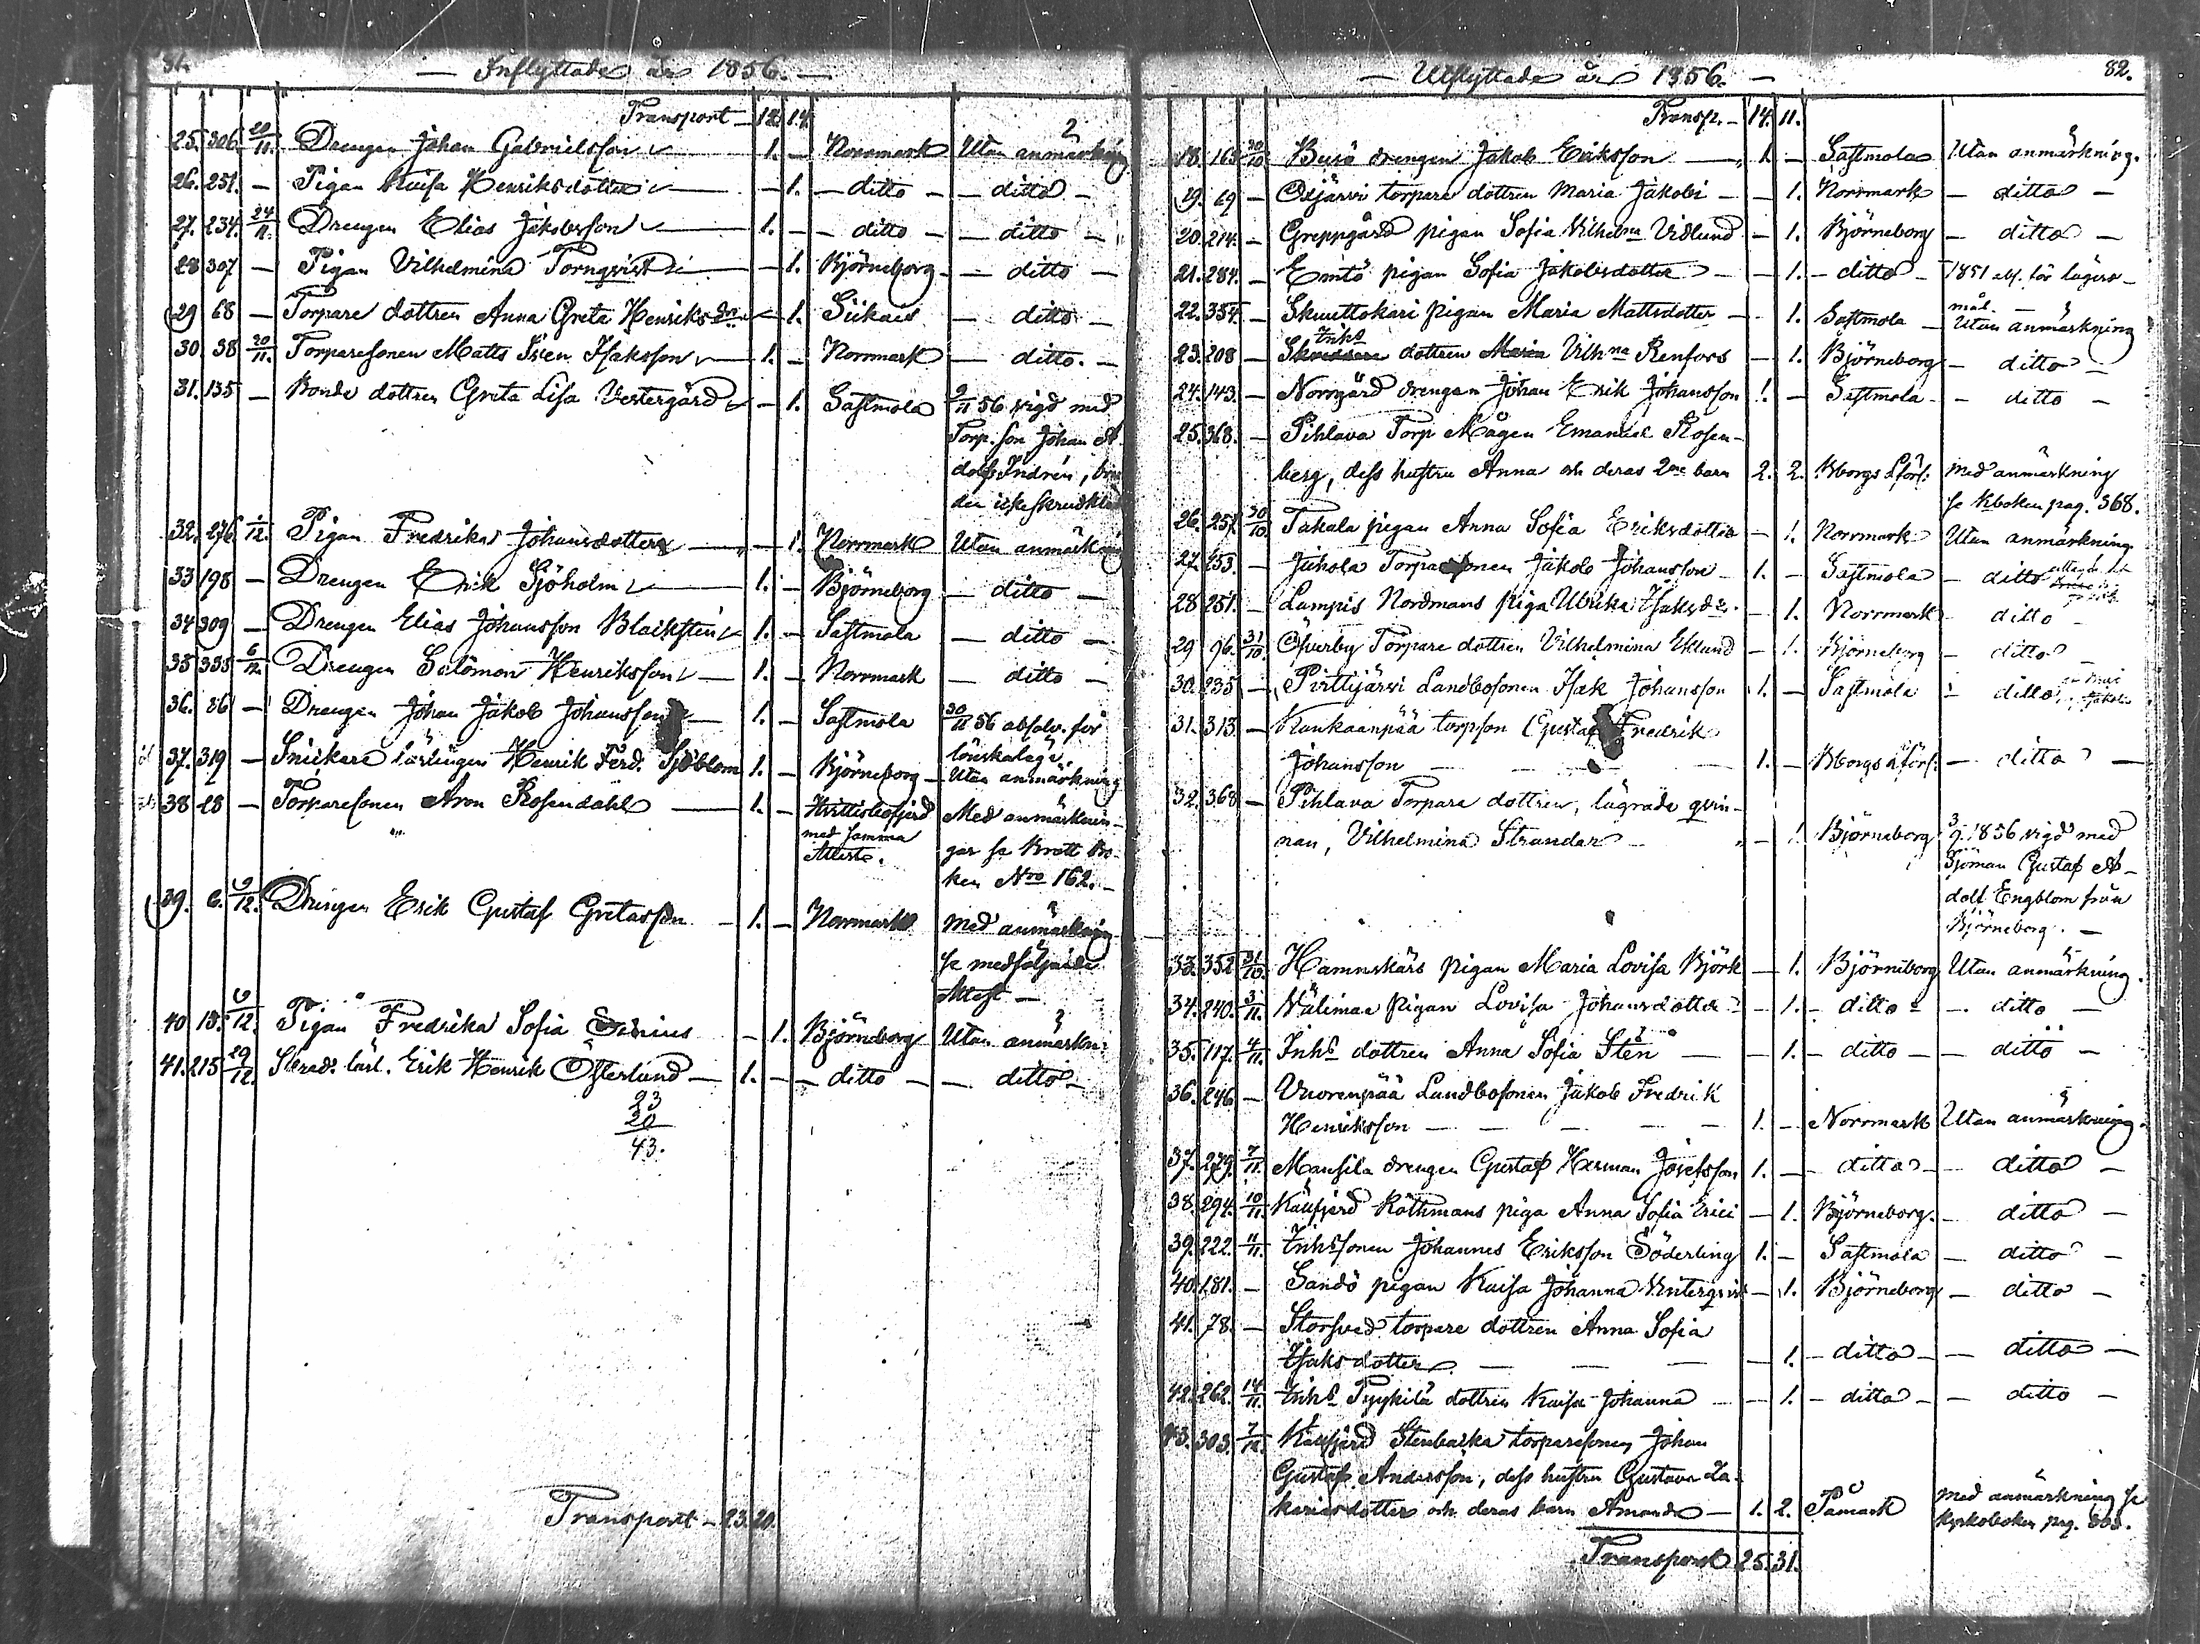 81.
— Inflyttade år 1856. —
Transport — 12. 14.
25. 306. 20/11. Drengen Johan Gabrielsson — 1. — Norrmark Utan anmärkning
26. 251. — Pigan Kaisa Henriksdotter — — 1. — ditto — — ditto —
27. 234. 24/11. Drengen Elias Jakobsson — 1. — — ditto — — ditto —
28 307 — Pigan Vilhelmina Tornqvist — — 1. Björneborg — ditto —
29 68 — Torpare dottren Anna Greta Henriks dr — 1. Siikais — ditto —
30. 38 20/11. Torparesonen Matts Sven Isaksson — 1. — Norrmark — ditto. —
31. 135 — Bonde dottren Greta Lisa Vestergård — 1. Sastmola 9/11 56 vigd med
Torp. son Johan A-
dolf Indrén,
32. 276. 1/12. Pigan Fredrika Johansdotter — — 1. Norrmark Utan anmärkning
33 198 — Drengen Erik Sjöholm — 1. — Björneborg — ditto —
34 309 — Drengen Elias Johansson Blackstén — 1. — Sastmola — ditto —
35 335 6/12. Drengen Salomon Henriksson — 1. — Norrmark — ditto —
36. 86 — Drengen Johan Jakob Johansson — 1. — Sastmola 30/11 56 absolv. för
lönskaläge.
37. 319 — Snickare lärlingen Henrik Ferd. Sjöblom 1. — Björneborg — Utan anmärkning
38 28 — Torparesonen Aron Rosendahl — 1. — Hvittisbofjerd Med anmärknin-
med samma gar se Brott Bo-
Attest. ken Nro 162. —
39. 6. 9/12. Drengen Erik Gustaf Gretasson — 1. — Norrmark Med anmärkning
se medföljande
Attest —
40 18. 9/12. Pigan Fredrika Sofia — 1. Björneborg Utan anmärkn:
41. 215 29/12. Skrad. lärl. Erik Henrik Österlund — 1. — — ditto — — ditto —
23
20
43.
Transport — 23. 20.
82.
— Utflyttade år 1856. —
Transp. — 14. 11.
18. 163 30/10. Busö drengen Jakob Eriksson — 1. — Sastmola Utan anmärkning.
19. 69 — Oxjärvi torpare dottren Maria Jakobi — — 1. Norrmark — ditto —
20. 214. — Greppgård pigan Sofia Vilhelma Vidlund — 1. Björneborg — ditto —
21. 284. — Emtö pigan Sofia Jakobsdotter — — 1. — ditto — 1851 abs. för lägers-
mål. —
22. 354. — Skuuttokari pigan Maria Mattsdotter — — 1. Sastmola — Utan anmärkning
Inhs
23. 208 — dottren Maria Vilhna Renfors — 1. Björneborg — ditto —
24. 143. — Norrgård drengen Johan Erik Johansson 1. — Sastmola — — ditto —
25. 368. — Pihlava Torp Mågen Emanuel Rosen-
berg, dess hustru Anna och deras 2ne barn 2. 2. Bborgs Lförs: Med anmärkning
se Kboken pag. 368.
26. 257. 30/10. Takala pigan Anna Sofia Eriksdotter — 1. Norrmark Utan anmärkning
27. 253. — Juhola Torparesonen Jakob Johansson — 1. — Sastmola — ditto
28 251. — Lampis Nordmans piga Ulrika Isaksdr. — 1. Norrmark — ditto —
29 96. 31/10. Öfverby Torpare dottren Vilhelmina Eklund — 1. Björneborg — ditto —
30. 235 — Pirttijärvi Landbosonen Isak Johansson 1. — Sastmola — ditto
31. 313. — Kankaanpää torpson Gustaf Fredrik
Johansson — — — 1. — Bborgs Lförs: — ditto —
32. 368 — Pihlava Torpare dottren, lägrade qvin-
nan, Vilhelmina Strandar — — 1. Björneborg 3/9 1856 vigd med
Sjöman Gustaf A-
dolf Engblom från
Björneborg. —
33. 352 31/10. Hamnskärs pigan Maria Lovisa Björk — 1. Björneborg Utan anmärkning.
34. 240. 3/11. Välimaa pigan Lovisa Johansdotter — 1. — ditto — — ditto —
35. 117. 4/11. Inhs dottren Anna Sofia Stén — — 1. — ditto — — ditto —
36. 246 — Vuorenpää Landbosonen Jakob Fredrik
Henriksson — — — — 1. — Norrmark Utan anmärkning.
37. 279. 7/11. Mansila drengen Gustaf Herman Josefsson 1. — ditto — — ditto —
38. 294. 10/11. Kållfjerd Råthmans piga Anna Sofia Erici — 1. Björneborg. — ditto —
39. 222. 11/11. Inhssonen Johannes Eriksson Söderling 1. — Sastmola — ditto —
40. 181. — Sandö pigan Kaisa Johanna Vinterqvist — 1. Björneborg — ditto —
41. 78. — Storsved torpare dottren Anna Sofia
Isaksdotter — — — — 1. — ditto — — ditto —
42. 262. 14/11. Inhs Pyykilä dottren Kaisa Johanna — 1. — ditto — — ditto —
43. 303. 7/12. Kållfjerd Stenbacka torparesonen Johan
Gustaf Andersson, dess hustru Gustava Za-
kariasdotter och deras barn Amanda — 1. 2. Påmark Med anmärkning se
Kyrkoboken pag. 303.
Transport 25. 31.